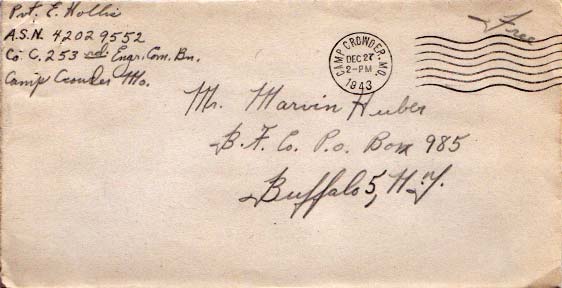 Pvt. E. Hollis
A.S.N. 42029552
Co. C. 253rd Engr. Com. Bn.
Camp Crowder Mo.
Free
CAMP CROWDER, MO.
DEC 27
2-PM
1943
Mr. Marvin Huber
B.F. Co. P.o. Box 985
Buffalo 5, N.Y.